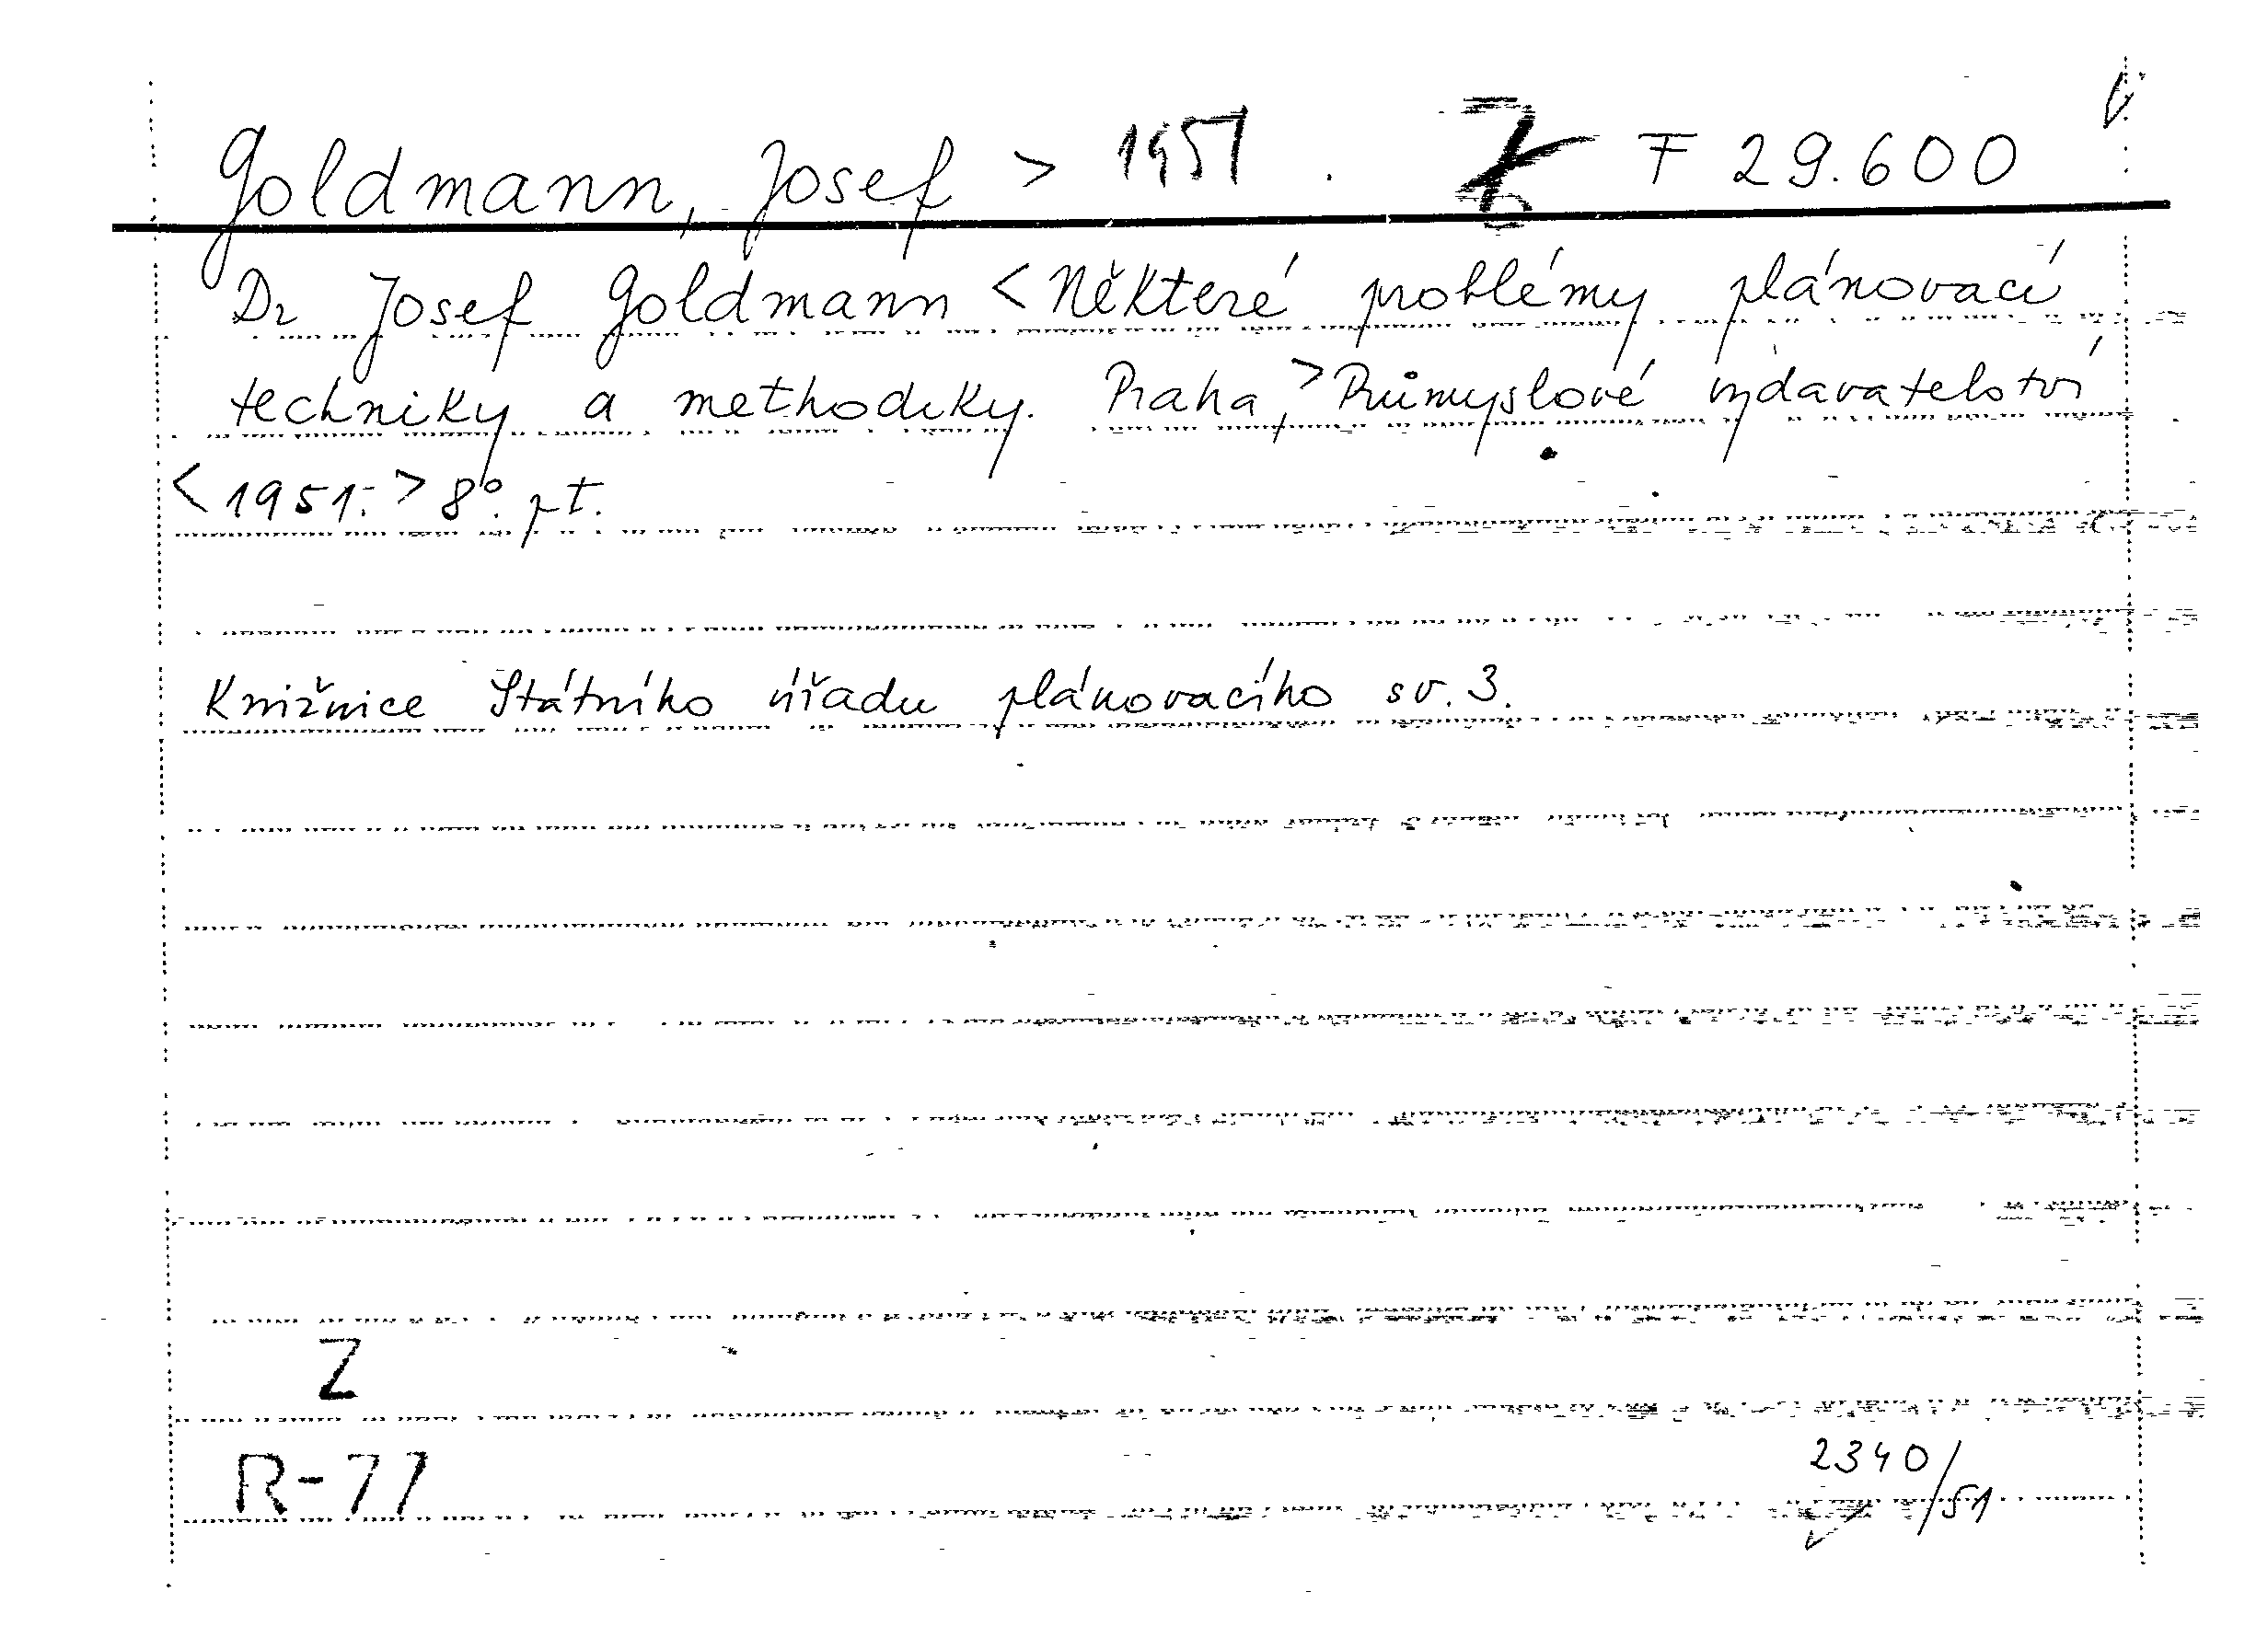 Goldmann, Josef > 1951. F 29.600
Dr Josef Goldmann < Některé problémy plánovací
techniky a methodiky. Praha, > Průmyslové vydavatelství
< 1951. > 8°. pt.
Knižnice Státního úřadu plánovacího sv. 3.
Z
R-77
2340/51